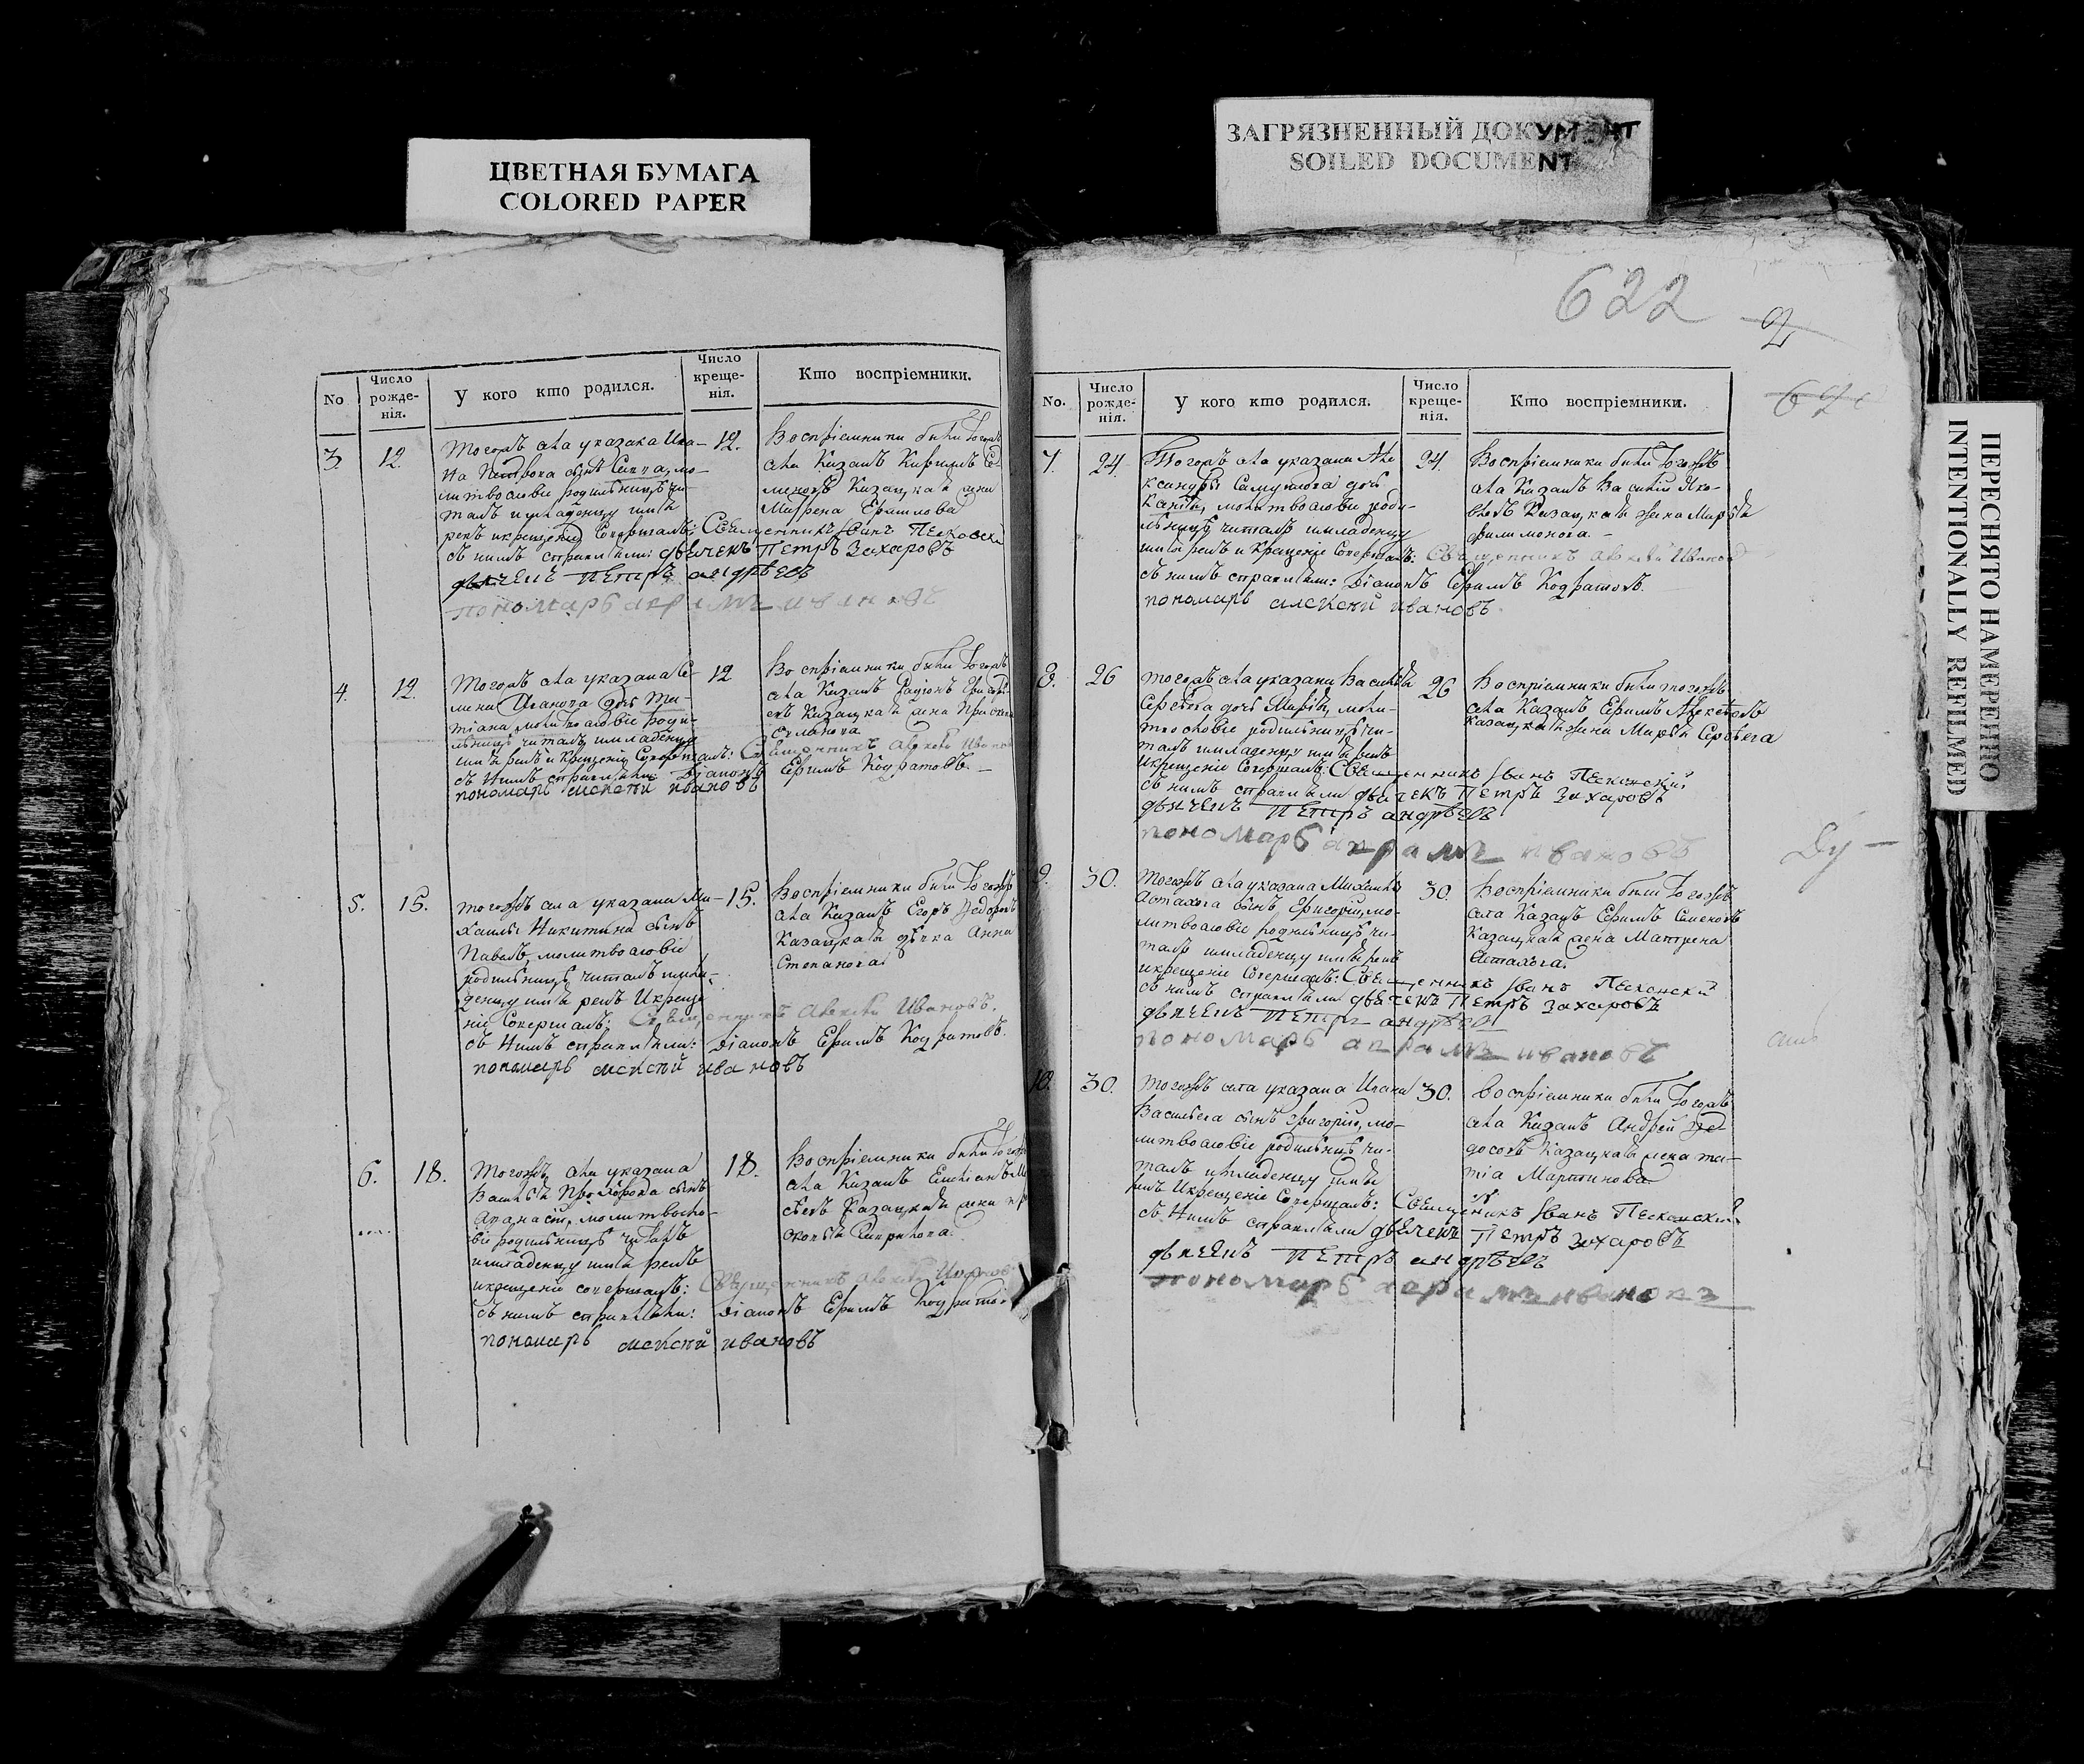 ЦВЕТНАЯ БУМАГА
COLORED PAPER
ЗАГРЯЗНЕННЫЙ ДОКУМЕНТ
SOILED DOCUMENT
ПЕРЕСНЯТО НАМЕРЕННО
INTENTIONALLY REFILMED
622
2
No
Число рожде-нія.
У кого кто родился.
Число креще-нія.
Кто воспріемники.
3.
12.
Тогожъ села указака Ива-
на Петрова сынъ Савва, мо-
литвословіе родильницѣ чи-
талъ имладенцу имя
рекъ икрещеніе Совершалъ: Священникъ Іванъ Песковскій
съ нимъ справляли: дьячекъ Петръ Захаровъ
дьячекъ Петръ андрѣевъ
пономарь аврамъ ивановъ
12.
Воспріемники были тогожъ
села Казакъ Кирилъ Се-
меновъ Казацкая жена
Матрена Ермилова
4.
12.
Тогожъ села указака Се-
мена Иванова дочь Та-
тіана, молитвословіе роди-
льницѣ читалъ имладенцу
имя рекъ и Крещеніе Совершалъ: Священникъ Алексѣй Ивановъ
съ Нимъ справляли: Діаконъ Ефимъ Кодратовъ.
пономарь алексѣй ивановъ
12
Воспріемники были тогожъ
села Казакъ
Казацкая жена
5.
15.
тогожъ села указака Ми-
хайлы Никитина сынъ
Павелъ, молитвословіе
родильницѣ читалъ имла-
денцу имя рекъ Икреще-
ніе Совершалъ: Священникъ Алексѣй Ивановъ.
съ Нимъ справляли: Діаконъ Ефимъ Кодратовъ.
пономарь алексѣй ивановъ
15.
Воспріемники были тогожъ
села Казакъ Егоръ Федоровъ
Казацкая дѣвка Анна
Степанова.
6.
18.
Тогожъ села указака
Василья Прохорова сынъ
Афанасій, молитвосло-
віе родильницѣ читалъ
имладенцу имя рекъ
икрещеніе совершалъ: Священникъ Алексѣй Ивановъ
съ нимъ справляли: Діаконъ Ефимъ Кодратовъ
пономарь алексѣй ивановъ
18.
Воспріемники были тогожъ
села Казакъ
Казацкая жена
No.
Число рожде-нія.
У кого кто родился.
Число креще-нія.
Кто воспріемники.
7.
24.
Тогожъ села указака Але-
ксандры Самуилова дочь
молитвословіе роди-
льницѣ читалъ имладенцу
имя рекъ и Крещеніе Совершалъ: Священникъ Алексѣй Ивановъ
съ нимъ справляли: Діаконъ Ефимъ Кодратовъ.
пономарь алексѣй ивановъ.
24.
Воспріемники были тогожъ
села Казакъ Василій Яко-
влевъ Казацкая жена Марья
Филимонова.
8.
26
тогожъ села указака Василья
Сергѣева дочь Марія, моли-
твословіе родильницѣ чи-
талъ имладенцу имя рекъ
Икрещеніе Совершалъ: Священникъ Іванъ Песковскій
съ нимъ справляли дьячекъ Петръ Захаровъ
дьячекъ Петръ андрѣевъ
пономарь аврамъ ивановъ
26
Воспріемники были тогожъ
села Казакъ Ефимъ Алексѣевъ
Казацкая жена Марья Сергѣева
9.
30.
Тогожъ села указака Михайлы
Астахова сынъ Григорій, мо-
литвословіе родильницѣ чи-
талъ имладенцу имя рекъ
икрещеніе Совершалъ: Священникъ Іванъ Песковскій
съ нимъ справляли дьячекъ Петръ Захаровъ
дьячекъ Петръ андрѣевъ
пономарь аврамъ ивановъ
30.
Воспріемники были тогожъ
села Казакъ Ефимъ Семеновъ
Казацкая жена Матрена
Астахова.
10.
30.
Тогожъ села указака Ивана
Васильева сынъ Григорій, мо-
литвословіе родильницѣ чи-
талъ имладенцу имя
рекъ Икрещеніе Совершалъ: Священникъ Іванъ Песковскій
съ Нимъ справляли дьячекъ Петръ Захаровъ
дьячекъ Петръ андрѣевъ
пономарь аврамъ ивановъ
30.
Воспріемники были тогожъ
села Казакъ Андрей Фе-
досовъ Казацкая жена та-
тіа Мартинова